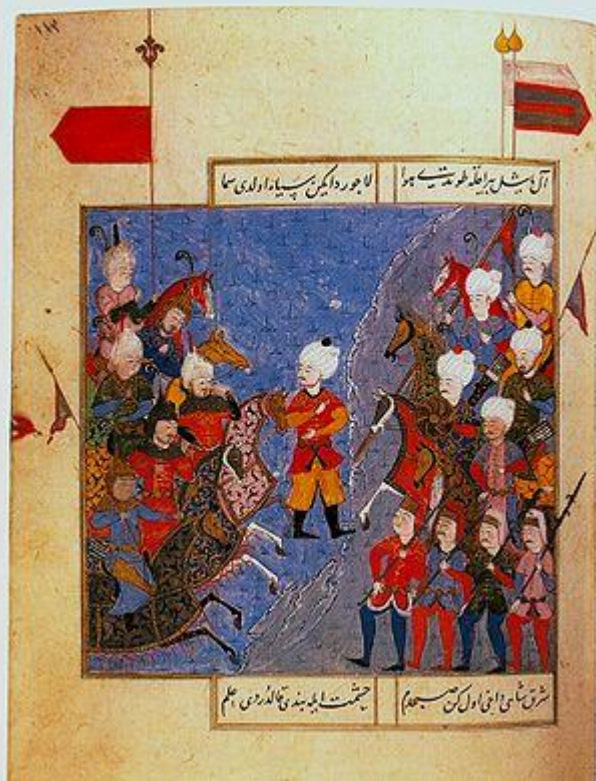 آل یاشل بیراغله طوندی هوا لاجورد ایکن سیاه اولدی سما
شرق شاهی داخی اول کن صبحدم حشمت ایله بندی قالدردی علم